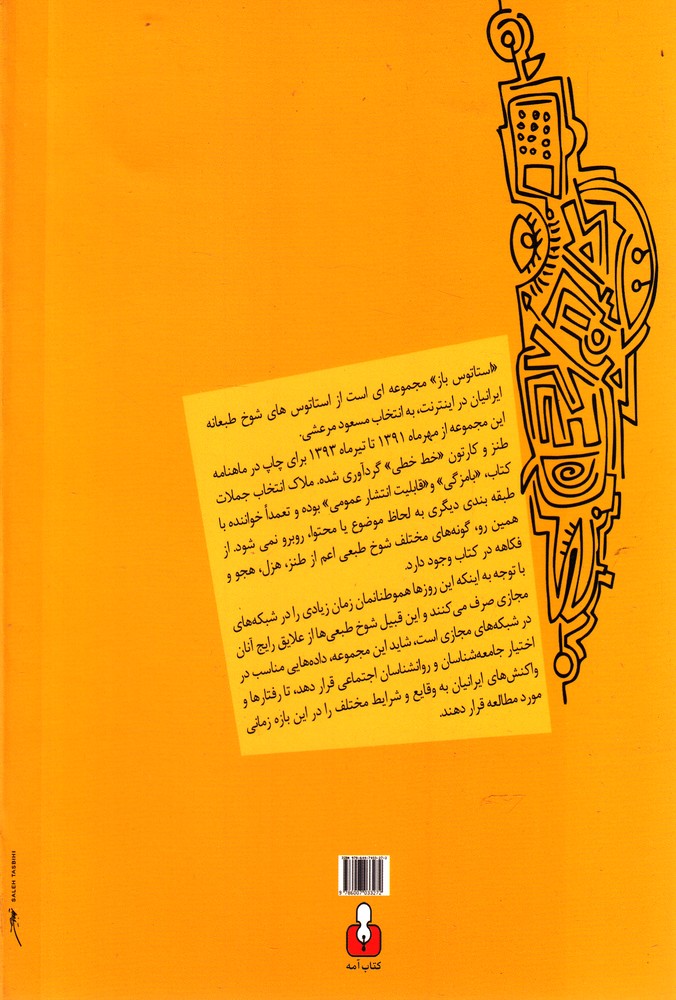 «استاتوس باز» مجموعه ای است از استاتوس های شوخ طبعانه
ایرانیان در اینترنت، به انتخاب مسعود مرعشی.
این مجموعه از مهرماه ۱۳۹۱ تا تیرماه ۱۳۹۳ برای چاپ در ماهنامه
طنز و کارتون «خط خطی» گردآوری شده. ملاک انتخاب جملات
کتاب، «بامزگی» و «قابلیت انتشار عمومی» بوده و تعمداً خواننده با
طبقه بندی دیگری به لحاظ موضوع یا محتوا، روبرو نمی شود. از
همین رو، گونه‌های مختلف شوخ طبعی اعم از طنز، هزل، هجو و
فکاهه در کتاب وجود دارد.
با توجه به اینکه این روزها هموطنانمان زمان زیادی را در شبکه‌های
مجازی صرف می‌کنند و این قبیل شوخ طبعی‌ها از علایق رایج آنان
در شبکه‌های مجازی است، شاید این مجموعه، داده‌هایی مناسب در
اختیار جامعه‌شناسان و روانشناسان اجتماعی قرار دهد، تا رفتارها و
واکنش‌های ایرانیان به وقایع و شرایط مختلف را در این بازه زمانی
مورد مطالعه قرار دهند.
SALEH TASBIHI
9 786007 033272
کتاب آمه